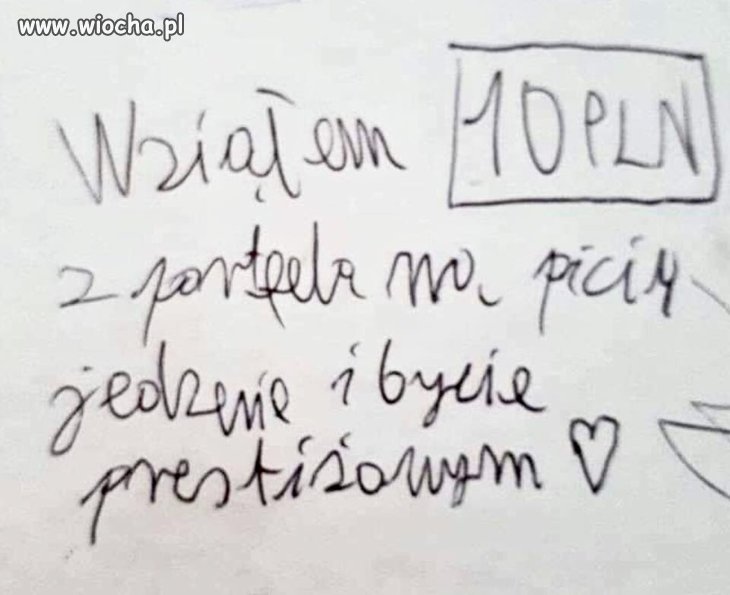 www.wiocha.pl
Wziąłem 10 PLN
z portfela na picie
jedzenie i bycie
prestiżowym ♡